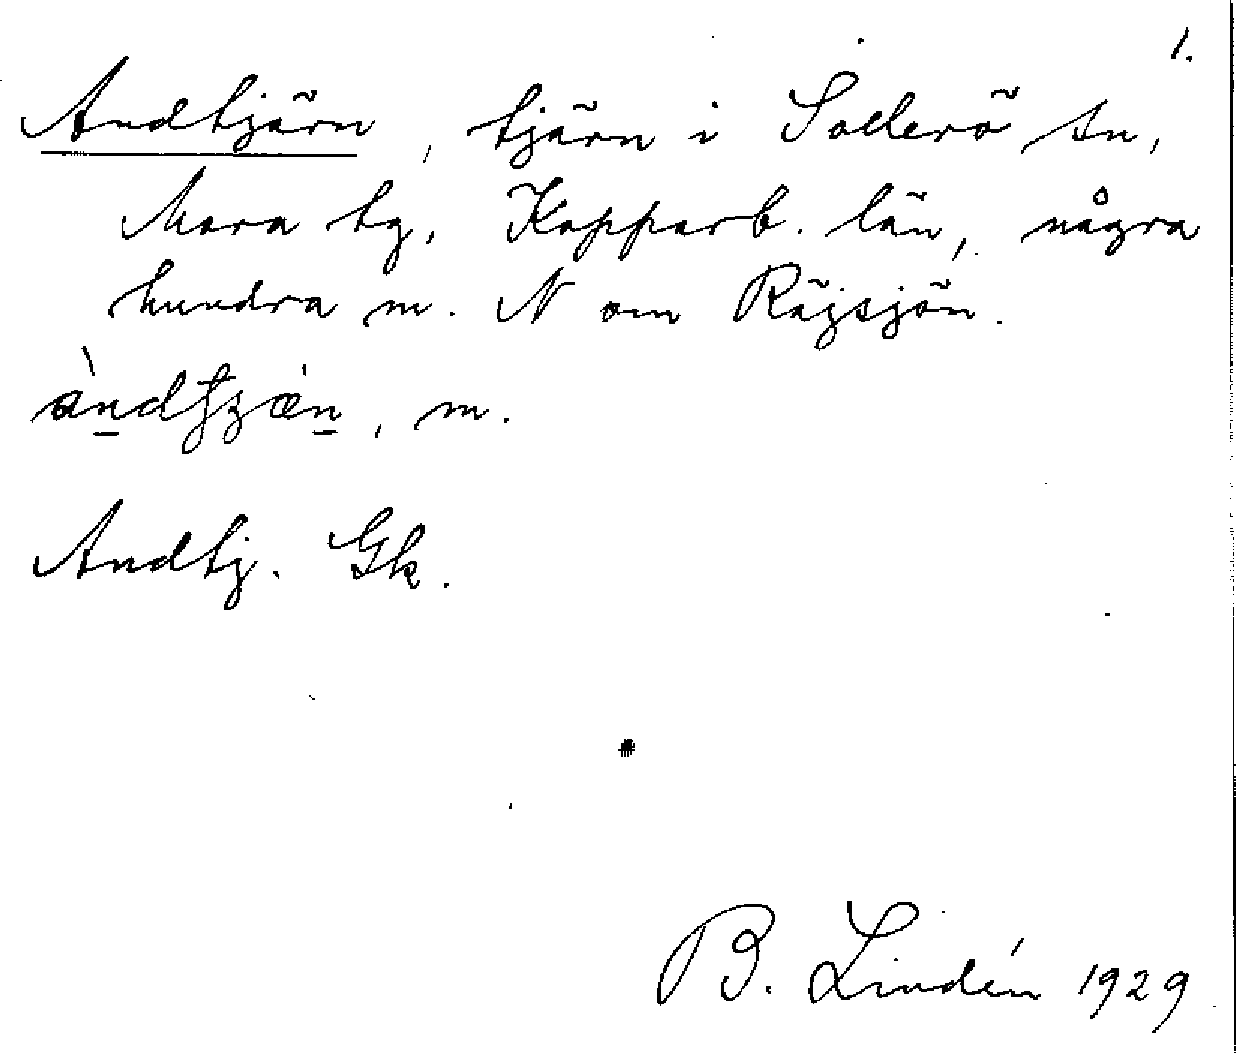 1.
Andtjärn, tjärn i Sollerö sn,
Mora tg, Kopparb. län, några
hundra m. N om Röjsjön.
m.
Andtj. Gk.
B. Lindén 1929